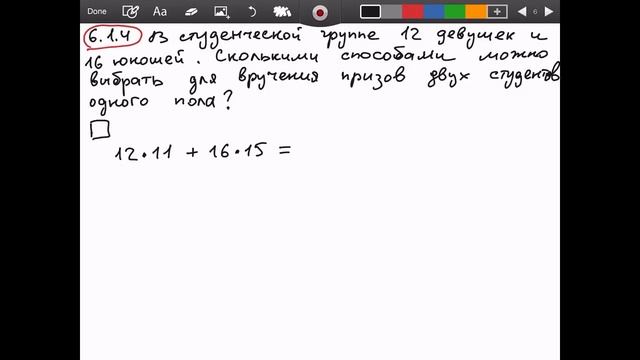 Done Aa 6
6.1.4 В студенческой группе 12 девушек и
16 юношей. Сколькими способами можно
выбрать для вручения призов двух студентов
одного пола?
12·11 + 16·15 =